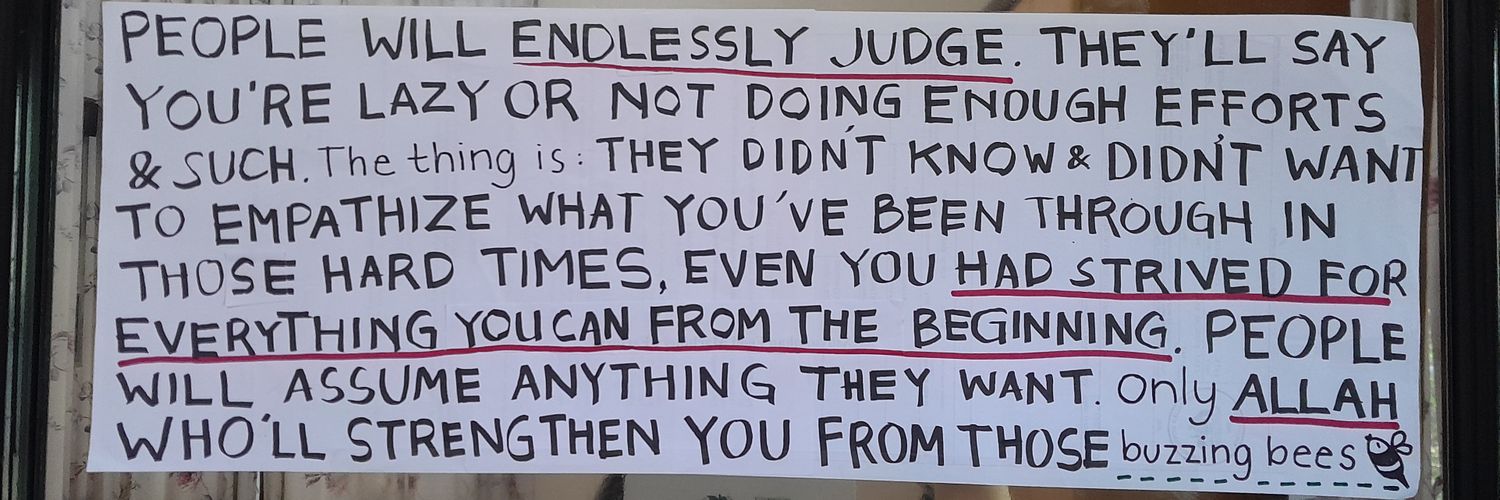 PEOPLE WILL ENDLESSLY JUDGE. THEY'LL SAY
YOU'RE LAZY OR NOT DOING ENOUGH EFFORTS
& SUCH. The thing is: THEY DIDN'T KNOW & DIDN'T WANT
TO EMPATHIZE WHAT YOU'VE BEEN THROUGH IN
THOSE HARD TIMES, EVEN YOU HAD STRIVED FOR
EVERYTHING YOU CAN FROM THE BEGINNING. PEOPLE
WILL ASSUME ANYTHING THEY WANT. only ALLAH
WHO'LL STRENGTHEN YOU FROM THOSE buzzing bees